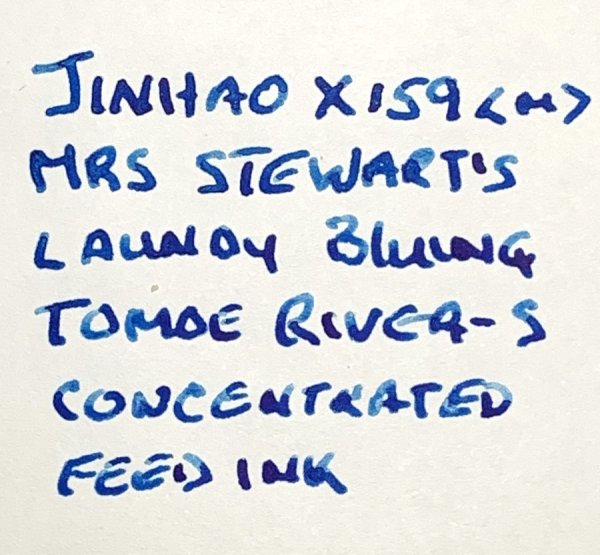 JINHAO X159 <M>
MRS STEWART'S
LAUNDY BLUING
TOMOE RIVER-S
CONCENTRATED
FEED INK